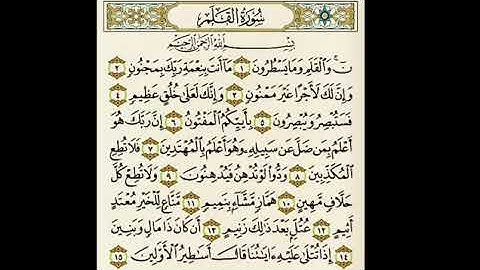 سُورَةُ الْقَلَمِ
بِسْمِ اللَّهِ الرَّحْمَٰنِ الرَّحِيمِ
نٓ ۚ وَالْقَلَمِ وَمَا يَسْطُرُونَ ١ مَا أَنتَ بِنِعْمَةِ رَبِّكَ بِمَجْنُونٍ ٢
وَإِنَّ لَكَ لَأَجْرًا غَيْرَ مَمْنُونٍ ٣ وَإِنَّكَ لَعَلَىٰ خُلُقٍ عَظِيمٍ ٤
فَسَتُبْصِرُ وَيُبْصِرُونَ ٥ بِأَييِّكُمُ الْمَفْتُونُ ٦ إِنَّ رَبَّكَ هُوَ
أَعْلَمُ بِمَن ضَلَّ عَن سَبِيلِهِ وَهُوَ أَعْلَمُ بِالْمُهْتَدِينَ ٧ فَلَا تُطِعِ
الْمُكَذِّبِينَ ٨ وَدُّوا لَوْ تُدْهِنُ فَيُدْهِنُونَ ٩ وَلَا تُطِعْ كُلَّ
حَلَّافٍ مَّهِينٍ ١٠ هَمَّازٍ مَّشَّاءٍ بِنَمِيمٍ ١١ مَّنَّاعٍ لِّلْخَيْرِ مُعْتَدٍ
أَثِيمٍ ١٢ عُتُلٍّ بَعْدَ ذَٰلِكَ زَنِيمٍ ١٣ أَن كَانَ ذَا مَالٍ وَبَنِينَ
١٤ إِذَا تُتْلَىٰ عَلَيْهِ آيَاتُنَا قَالَ أَسَاطِيرُ الْأَوَّلِينَ ١٥